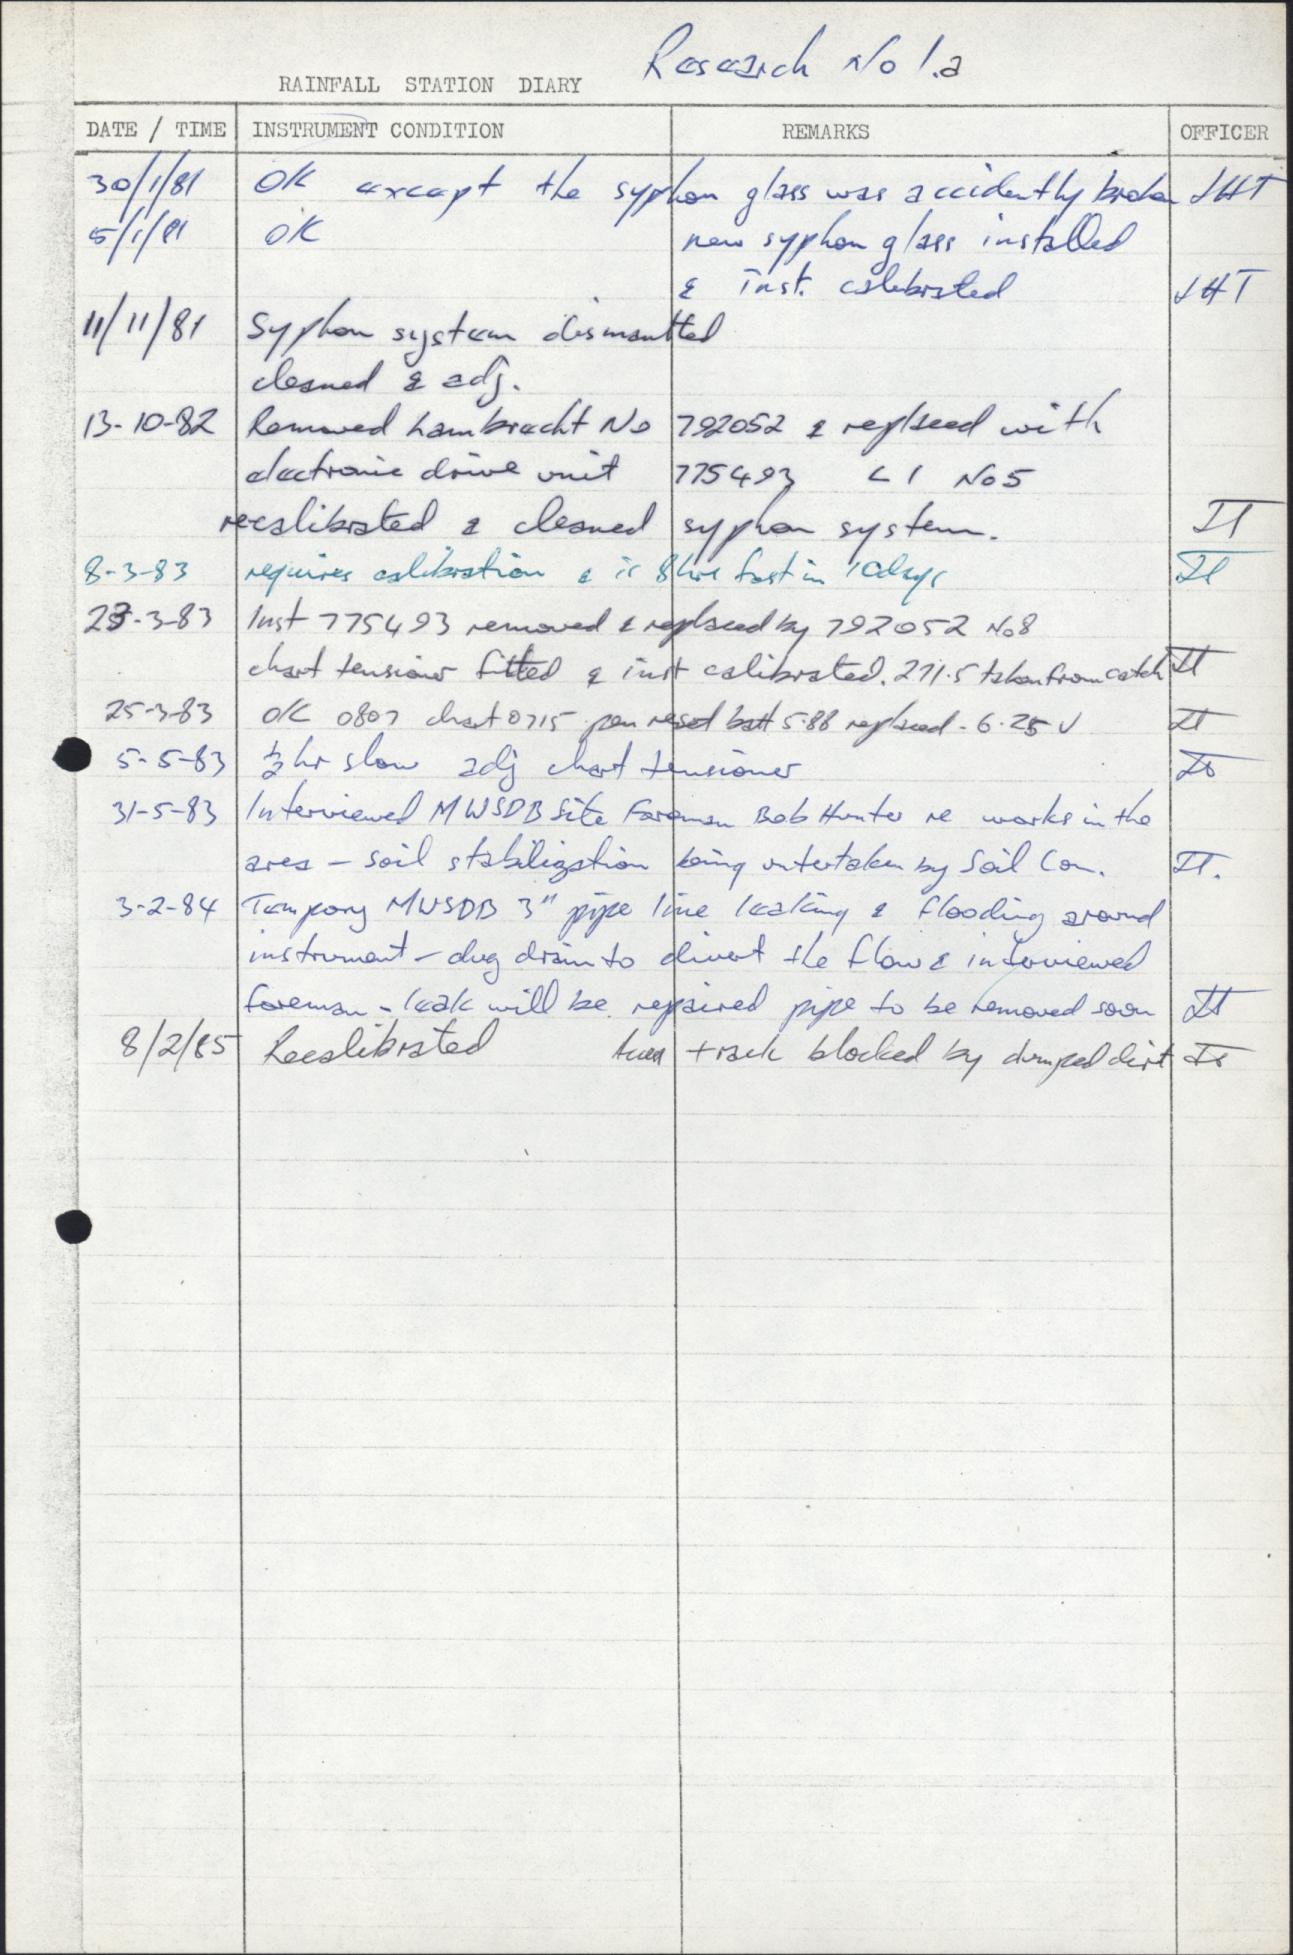 Research No 1.a
RAINFALL STATION DIARY
DATE / TIME INSTRUMENT CONDITION REMARKS OFFICER
30/1/81 OK except the syphon glass was accidently broken JHT
5/1/81 OK new syphon glass installed
& inst. calibrated JHT
11/11/81 Syphon system dismantled
cleaned & adj.
13-10-82 Removed Lambrecht No 792052 & replaced with
electronic drive unit 775493 L1 No5
recalibrated & cleaned syphon system. IT
8-3-83 requires calibration & is 8 hrs fast in 10 days
23-3-83 Inst 775493 removed & replaced by 792052 No8
chart tensioner fitted & inst calibrated. 271.5 taken from catch
25-3-83 OK 0807 chart 0715 pen reset batt 5.88 replaced - 6.25 V
5-5-83 ½ hr slow adj chart tensioner
31-5-83 Interviewed MWSDB Site Foreman Bob Hunter re works in the
area - soil stabilization being untertaken by Soil Con. IT.
3-2-84 Tempory MWSDB 3" pipe line leaking & flooding around
instrument - dug drain to divert the flow & interviewed
foreman - leak will be repaired pipe to be removed soon
8/2/85 Recalibrated track blocked by dumped dirt